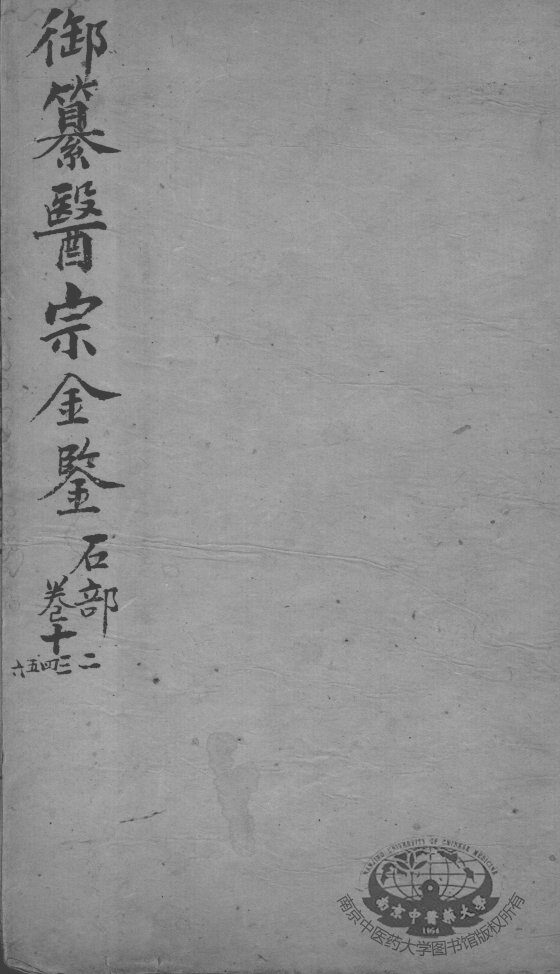 御纂醫宗金鑒
石部
卷十
二三四五六
NANJING UNIVERSITY OF CHINESE MEDICINE
南京中醫藥大學
1954
南京中医药大学图书馆版权所有